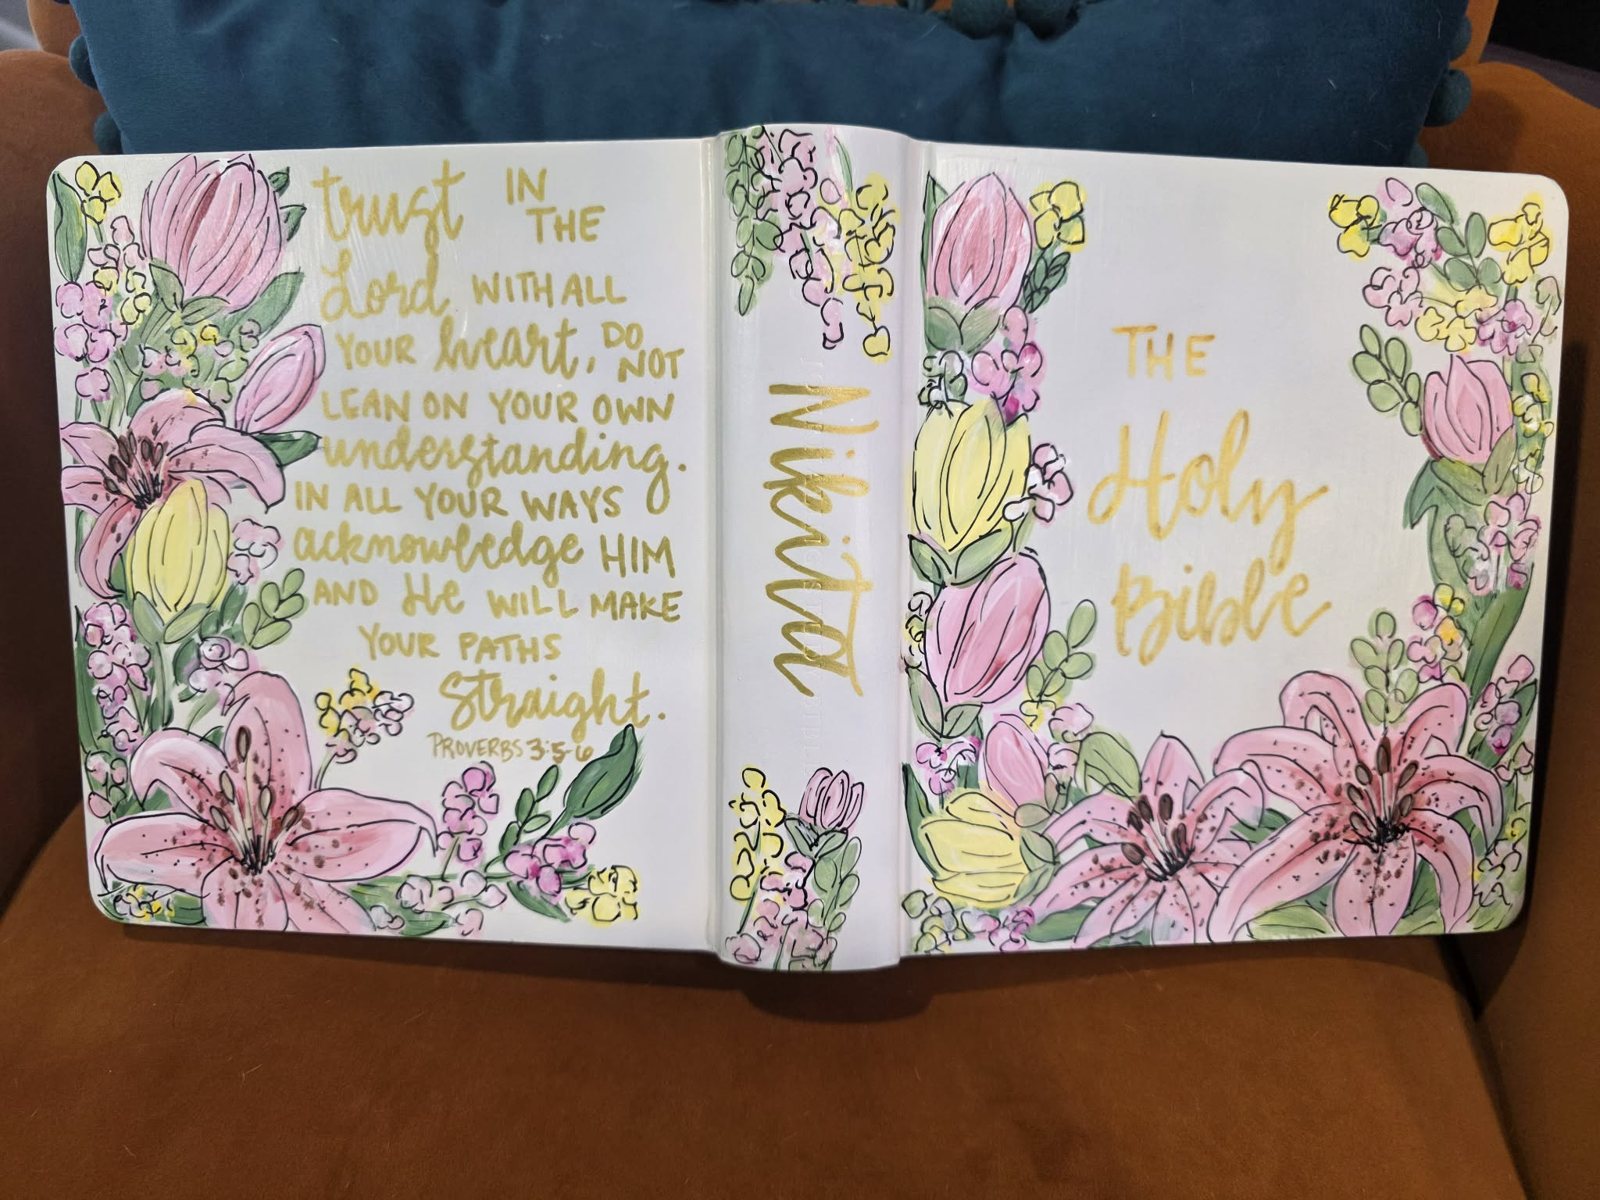 trust IN
THE
Lord WITH ALL
YOUR heart, DO
NOT
LEAN ON YOUR OWN
understanding.
IN ALL YOUR WAYS
acknowledge HIM
AND He WILL MAKE
YOUR PATHS
straight.
PROVERBS 3:5-6
Nikita
THE
Holy
Bible